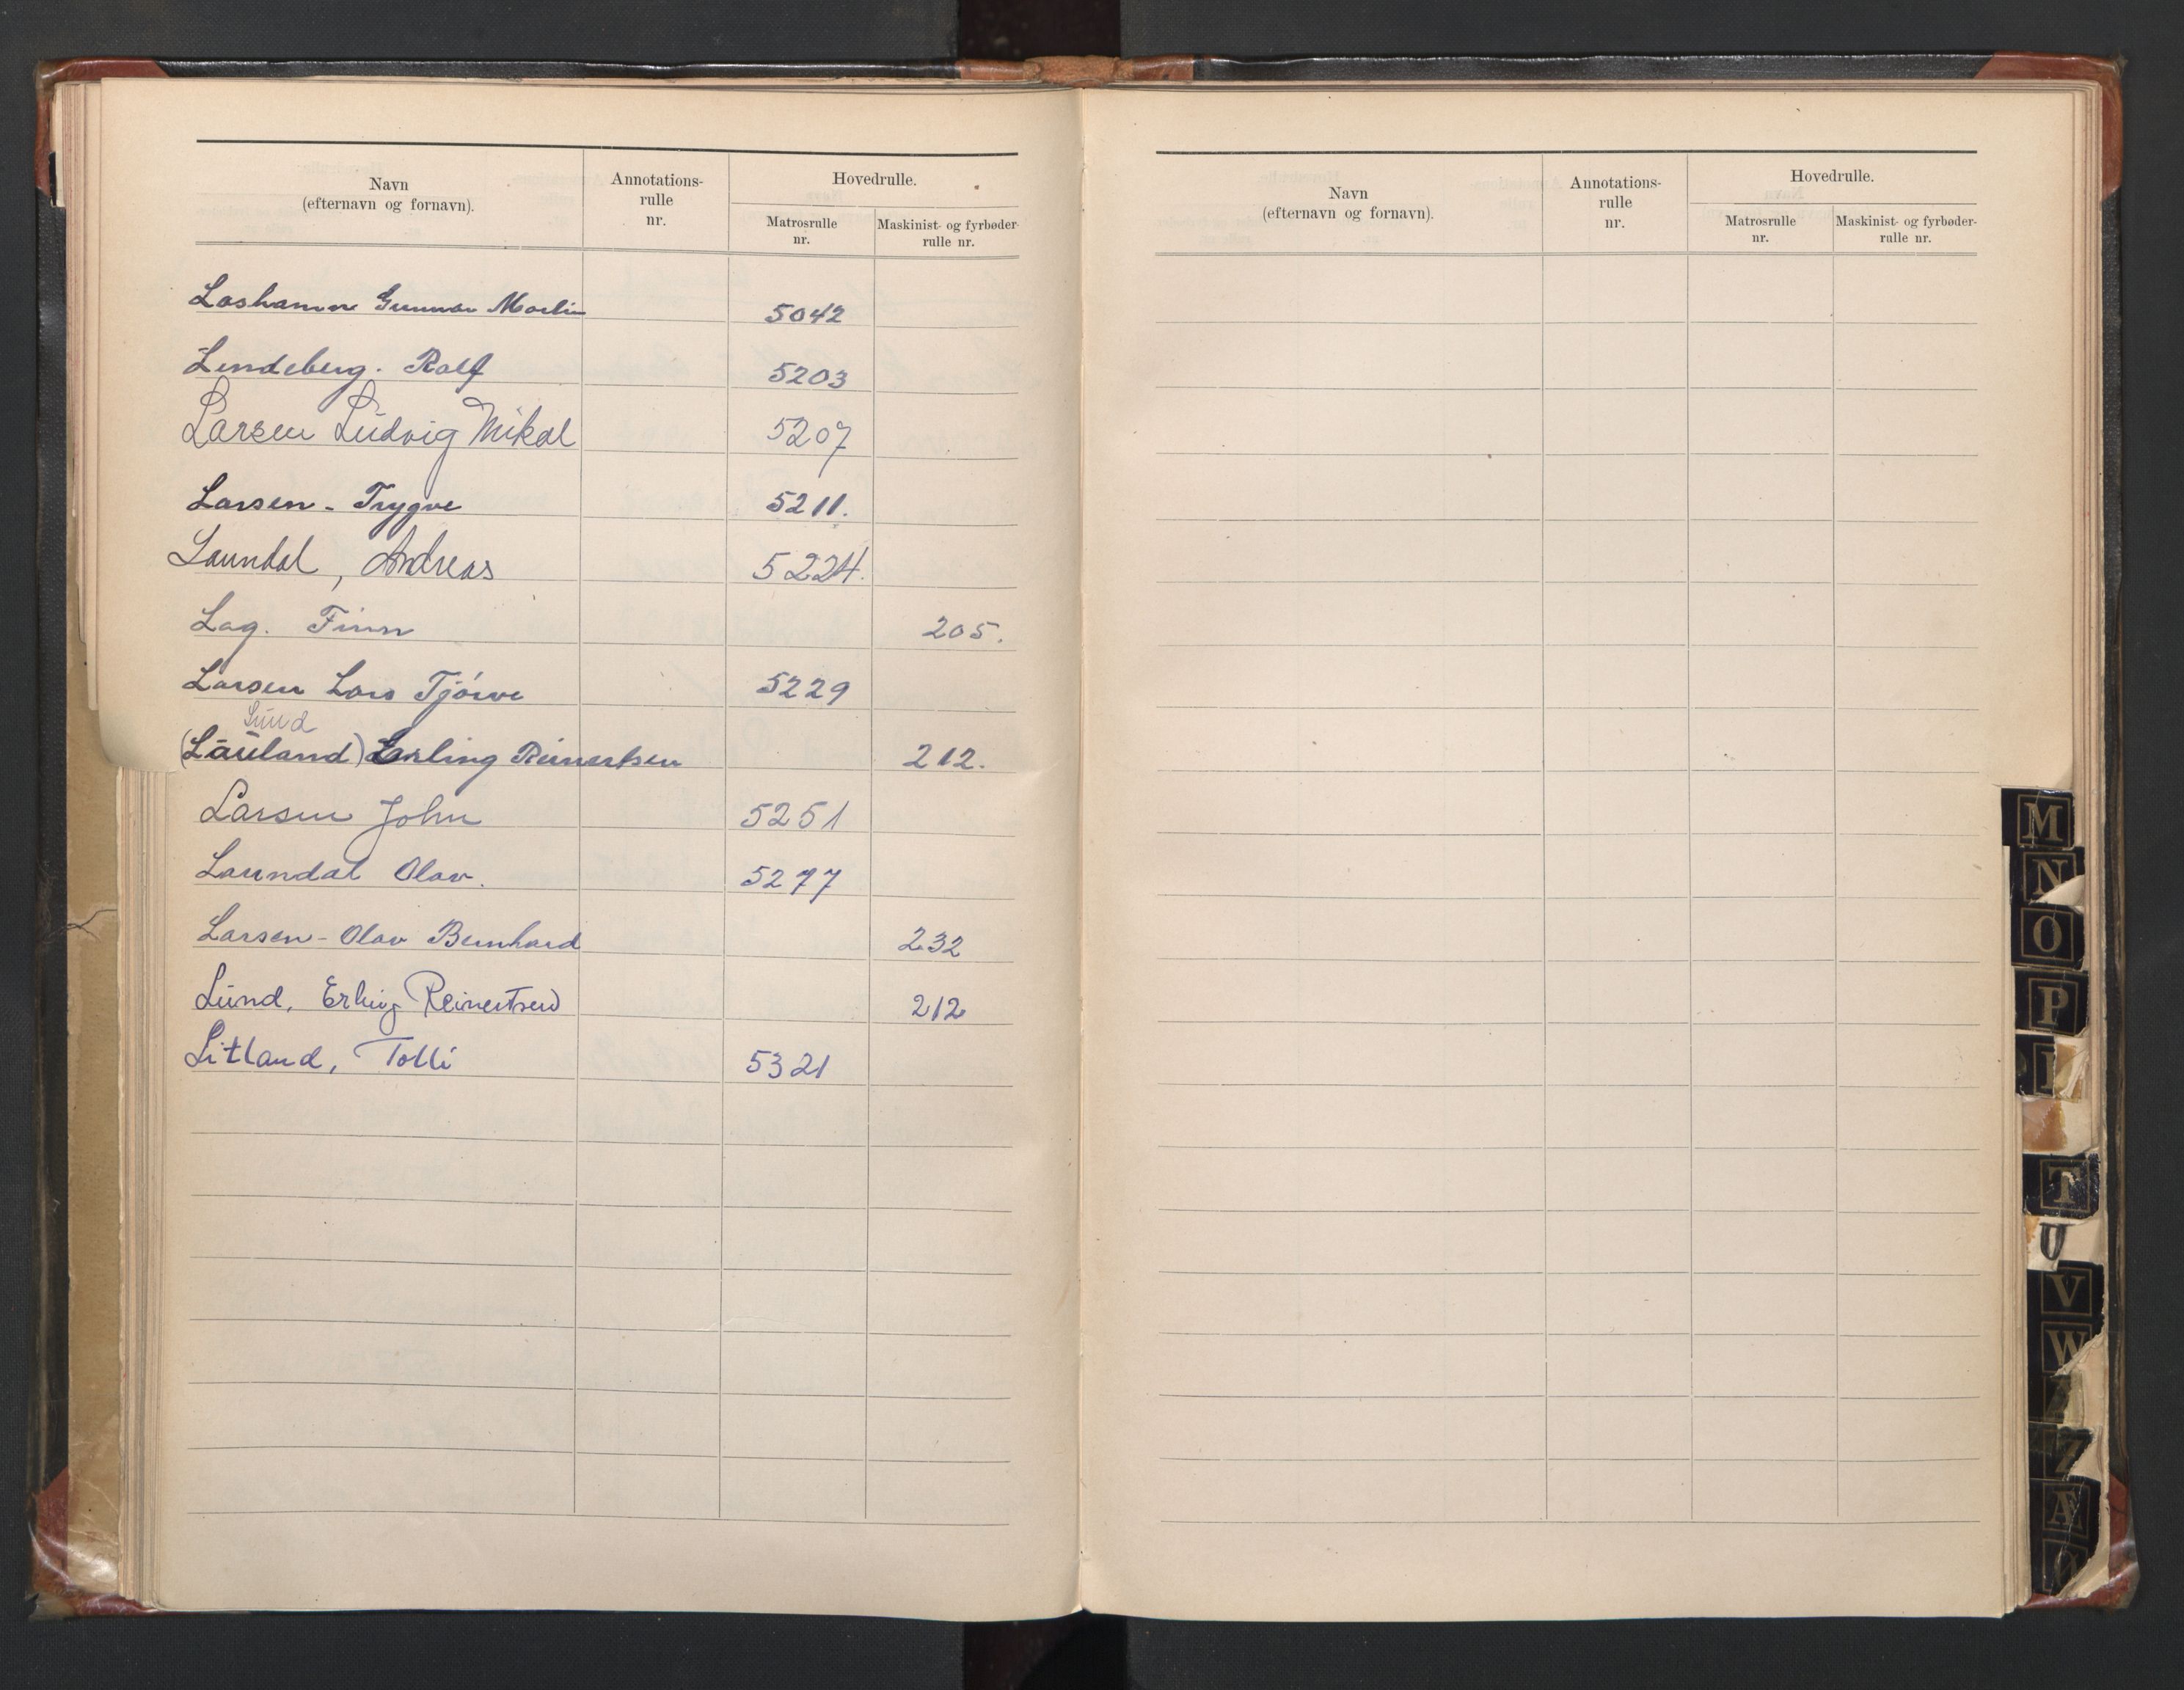 Navn
(efternavn og fornavn).
Annotations-
rulle
nr.
Hovedrulle.
Matrosrulle
nr.
Maskinist- og fyrbøder-
rulle nr.
Loshamn Gunnar Martin 5042
Lendeberg. Rolf 5203
Larsen Ludvig Mikal 5207
Larsen - Trygve 5211.
Laundal, Andreas 5224.
Lag. Finn 205.
Larsen Lars Tjörve 5229
Lund
(Lauland) Erling Reinertsen 212.
Larsen John 5251
Laundal Olav. 5277
Larsen - Olav Bernhard 232
Lund, Erling Reinertsen 212
Litland, Tolli 5321
Navn
(efternavn og fornavn).
Annotations-
rulle
nr.
Hovedrulle.
Matrosrulle
nr.
Maskinist- og fyrbøder-
rulle nr.
M
N
O
P
T
U
V
W
Z
Æ